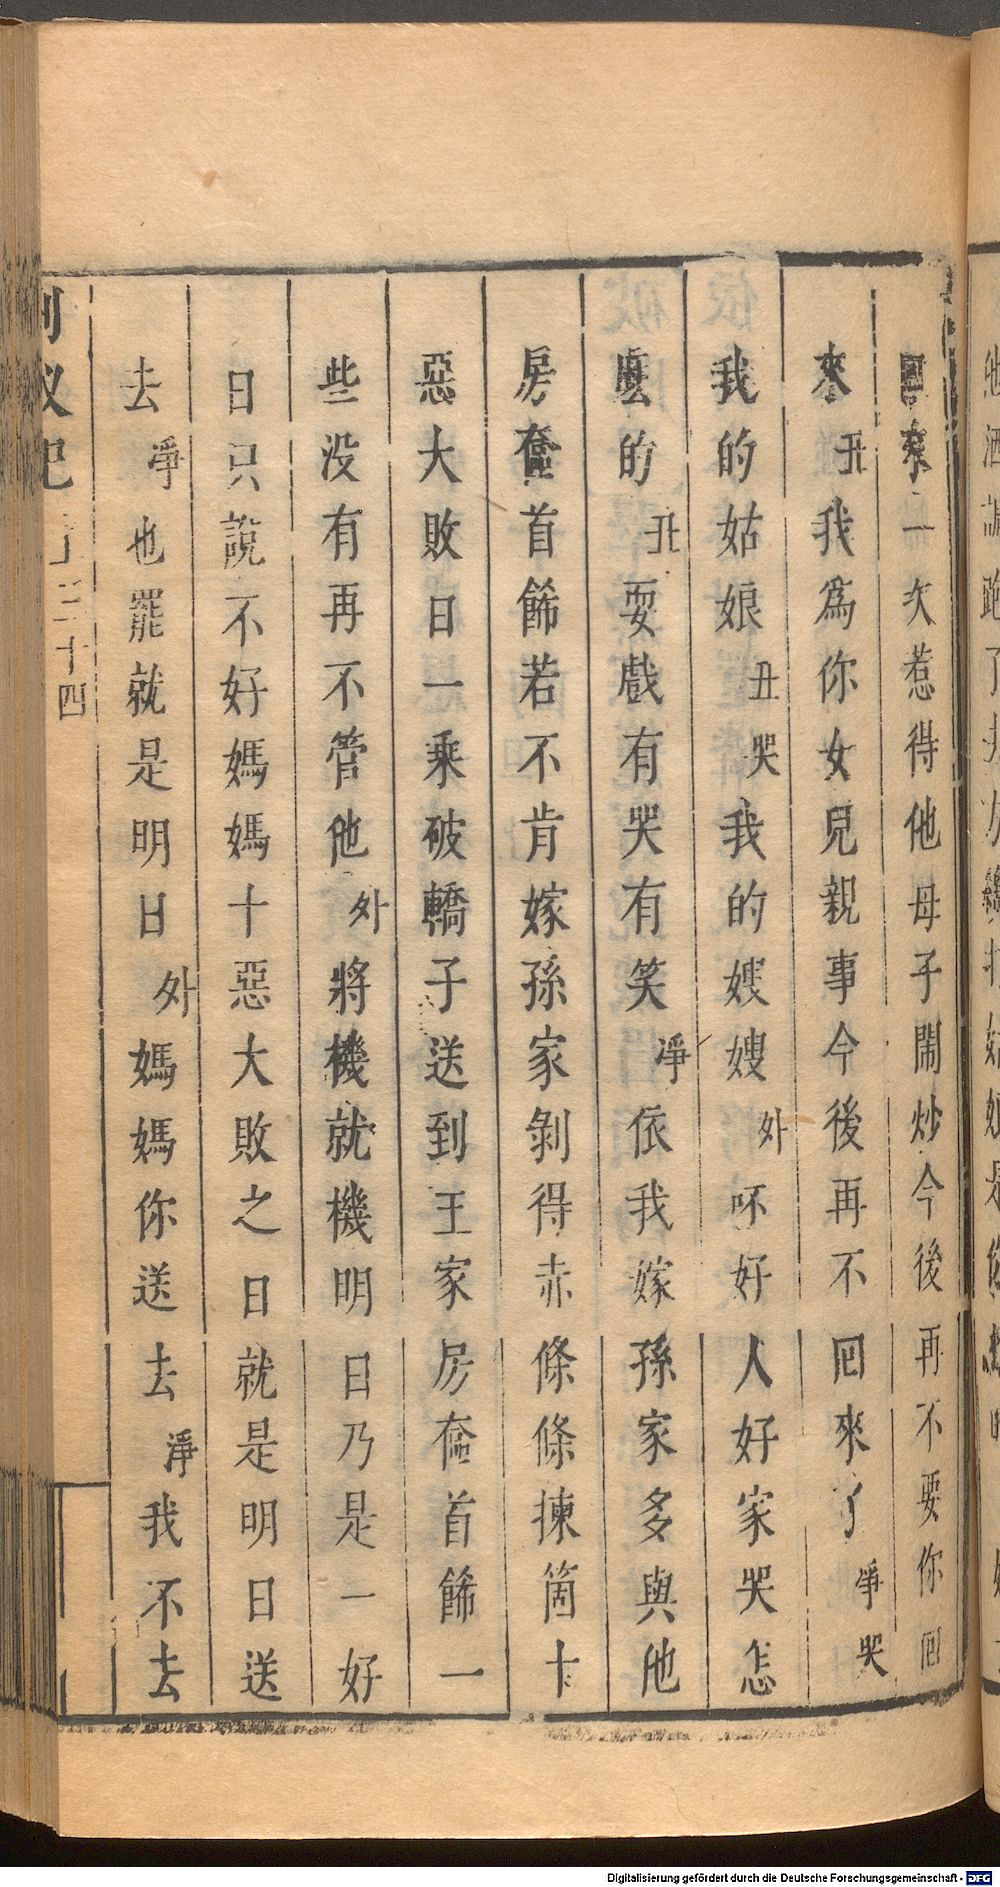 回來一次惹得他母子鬧炒今後再不要你回
來丑我為你女兒親事今後再不回來了淨哭
我的姑娘丑哭我的嫂嫂外呸好人好家哭怎
麽的丑耍戲有哭有笑淨依我嫁孫家多與他
房奩首餙若不肯嫁孫家剝得赤條條揀箇十
惡大敗日一乘破轎子送到王家房奩首餙一
些没有再不管他外將機就機明日乃是一好
日只說不好媽媽十惡大敗之日就是明日送
去淨也罷就是明日外媽媽你送去淨我不去
釵記
三十四
Digitalisierung gefördert durch die Deutsche Forschungsgemeinschaft - DFG